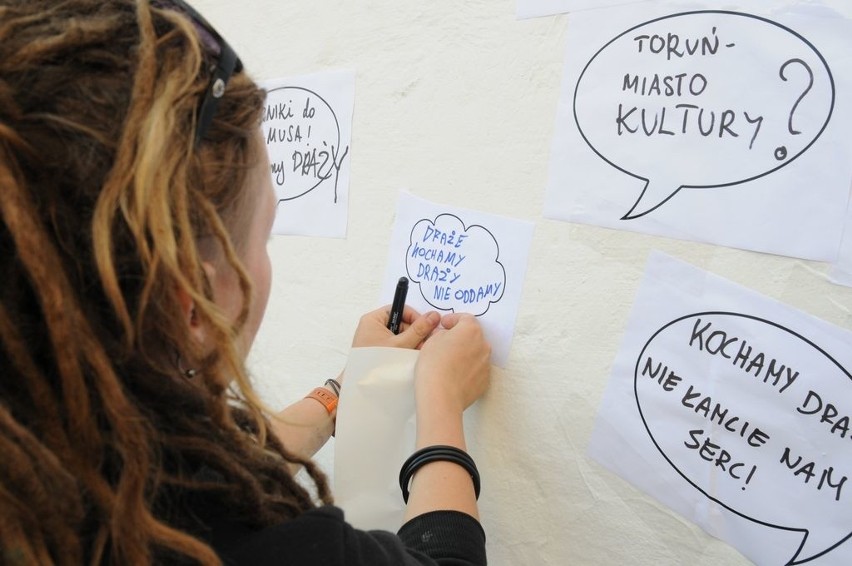 TORUŃ-
MIASTO
KULTURY?
do
MUSA!
DRAŻY
DRAŻE
KOCHAMY
DRAŻY
NIE ODDAMY
KOCHAMY
NIE ŁAMCIE NAM
SERC!